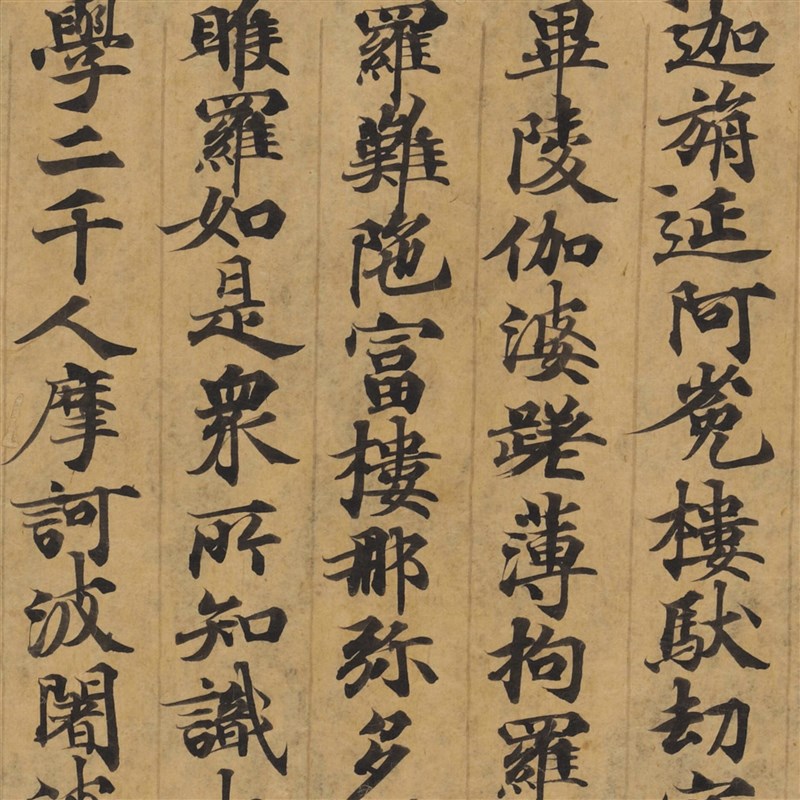 迦旃延阿㝹樓馱劫
畢陵伽婆蹉薄拘羅
羅難陁富樓那弥多
睺羅如是衆所知識
學二千人摩訶波闍波